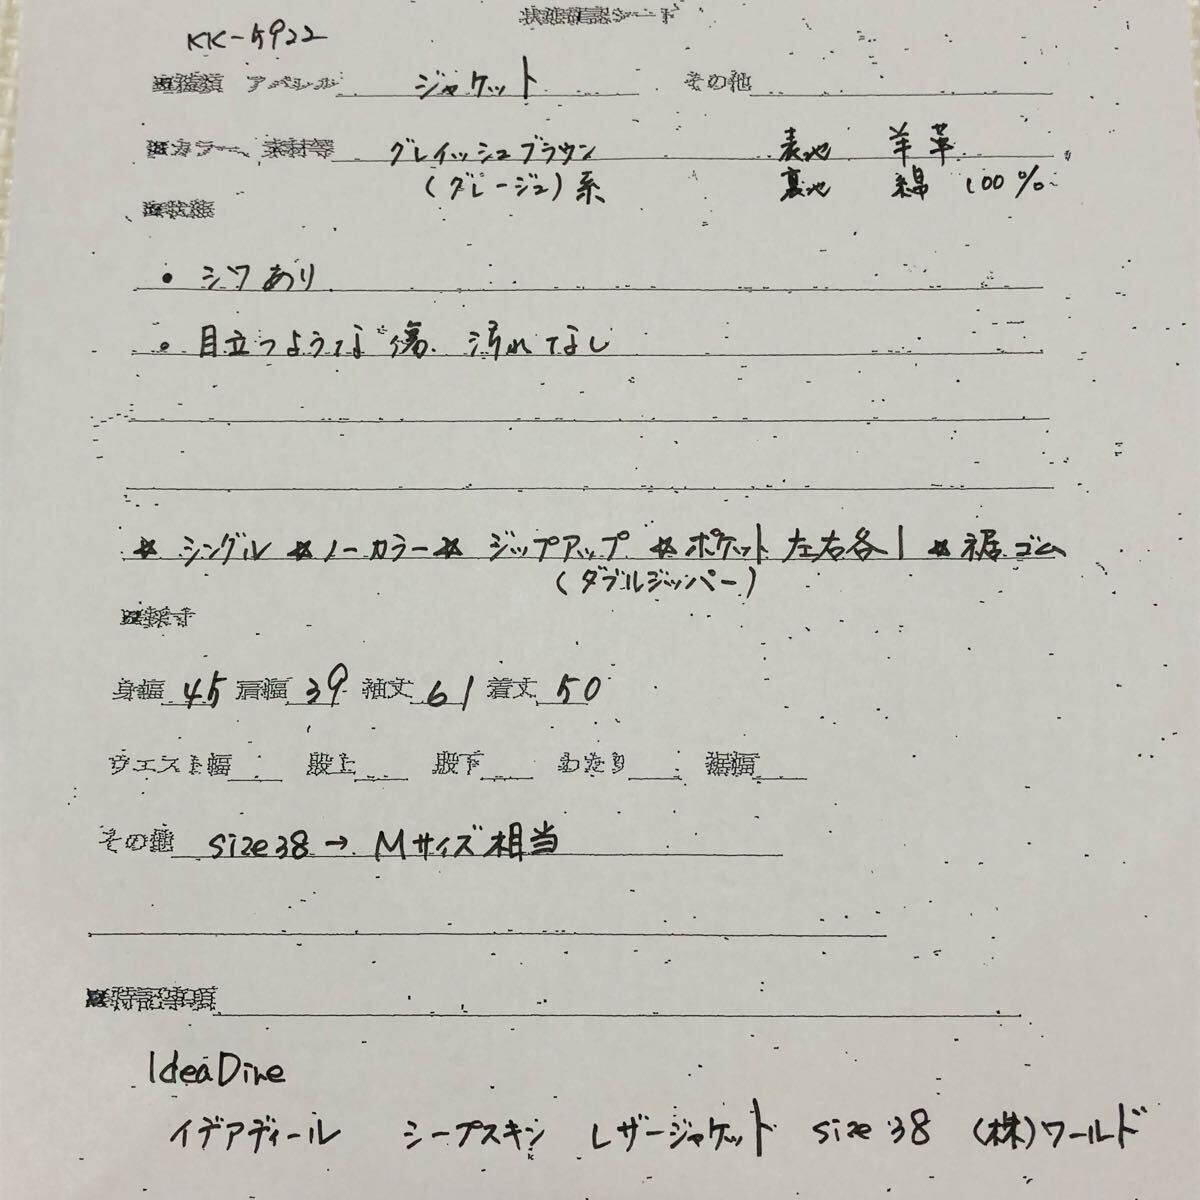 状態確認シート
KK-5922
■種類 アパレル ジャケット その他
■カラー、素材等 グレイッシュブラウン 表地 羊革
(グレージュ)系 裏地 綿 100%
■状態
• シワあり
• 目立つような傷、汚れてなし
☆ シングル ☆ ノーカラー ☆ ジップアップ ☆ ポケット 左右各1 ☆ 裾ゴム
(ダブルジッパー)
■採寸
身幅 45 肩幅 39 袖丈 61 着丈 50
ウエスト幅 股上 股下 わたり 裾幅
その他 size38 → Mサイズ相当
■特記事項
IdeaDire
イデアディール シープスキン レザージャケット size 38 (株)ワールド